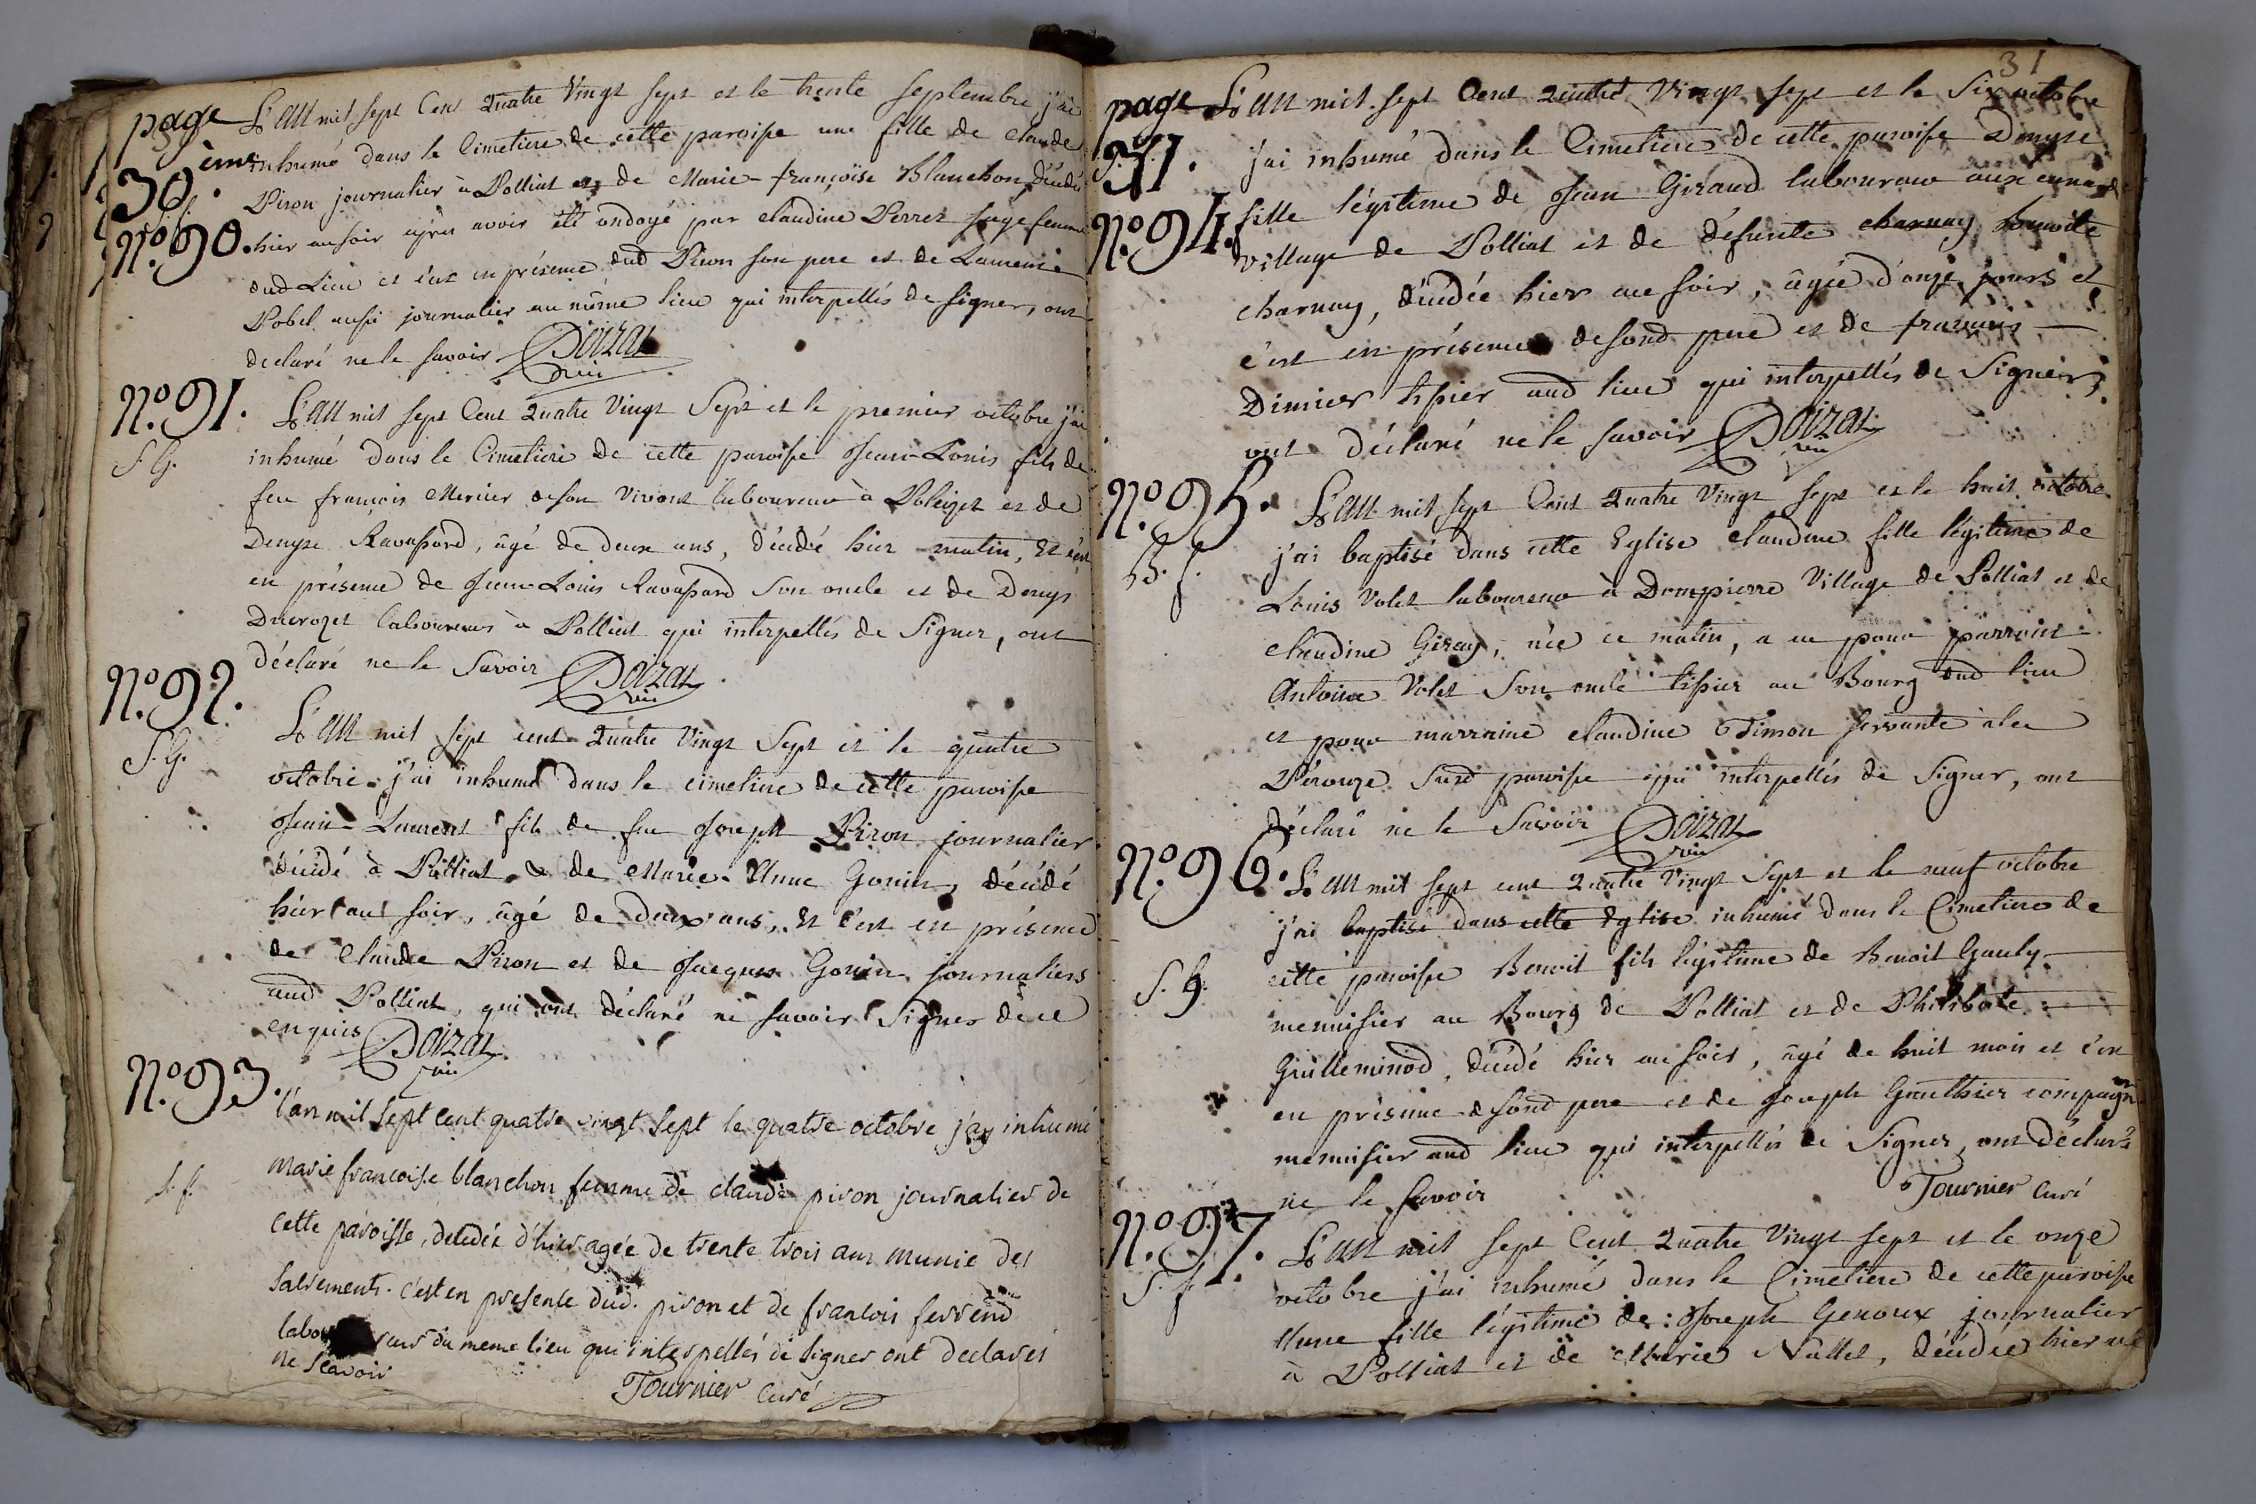 page
30.ème
S. f.
N.º 90.
L'an mil sept Cent Quatre Vingt sept et le trente septembre j'ai
inhumé dans le Cimetiere de cette paroisse une fille de Claude
Piron journalier à Polliat et de Marie-françoise Blanchon, décédée
hier au soir après avoir été ondoyé par Claudine Perret sage femme
dud Lieu et c'est en présence dud Piron son pere et de Laurent
Pobel aussi journalier au même lieu qui interpellés de signer, ont
declaré ne le savoir Doizat
vic
N.º 91.
S. G.
L'an mil sept Cent Quatre Vingt Sept et le premier octobre j'ai
inhumé dans le Cimetiere de cette paroisse Jean-Louis fils de
feu françois Mercier de son Vivant laboureur à Poleizet et de
Denyse Ravassard, âgé de deux ans, décédé hier matin, Et c'est
en présence de Jean-Louis Ravassard Son oncle et de Denys
Ducrozet laboureurs à Polliat qui interpellés de Signer, ont
déclaré ne le Savoir Doizat
vic
N.º 92.
S. G.
L'an mil sept cent Quatre Vingt Sept et le quatre
octobre j'ai inhumé dans le cimetiere de cette paroisse
Jean-Laurent fils de feu Joseph Piron journalier
décédé à Polliat & de Marie-Anne Gonin, décédé
hier au soir, âgé de deux ans, Et c'est en présence
de Claude Piron et de Jacques Gonin journaliers
aud Polliat, qui ont déclaré ne savoir Signer de ce
enquis Doizat
vic
N.º 93.
S. f.
l'an mil sept cent quatre vingt sept le quatre octobre j'ay inhumé
marie francoise blanchon femme de claude piron journalier de
cette paroisse, decedée d'hier agée de trente trois ans munie des
sacrements. c'est en presence dud. piron et de francois ferrend
laboureurs du meme lieu qui interpellés de signer ont declarés
ne scavoir
Tournier Curé
31
page
31.
S. f.
N.º 94.
L'an mil sept Cent Quatre Vingt sept et le Six octobre
j'ai inhumé dans le Cimetiere de cette paroisse Denyse
fille légitime de Jean Giraud laboureur aux
village de Polliat et de défunte charnay Benoite
charnay, décédée hier au soir, âgée d'onze jours et
c'est en présence de sond pere et de françois
Dimier tissier aud lieu qui interpellés de Signer,
ont déclaré ne le savoir Doizat
vic
N.º 95.
B. f.
L'an mil sept Cent Quatre Vingt sept et le huit octobre
j'ai baptisé dans cette Eglise Claudine fille légitime de
Louis Volet laboureur à Dompierre Village de Polliat et de
Claudine Giray, née ce matin, a eu pour parrain
Antoine Volet Son oncle tissier au Bourg dud lieu
et pour marraine Claudine Timon servante à la
Pérouze Susd paroisse qui interpellés de Signer, ont
déclaré ne le Savoir Doizat
vic
N.º 96.
S. G.
L'an mil sept cent Quatre Vingt Sept et le neuf octobre
j'ai baptisé dans cette Eglise inhumé dans le Cimetiere de
cette paroisse Benoit fils légitime de Benoit Gauly
menuisier au Bourg de Polliat et de Philiberte
Guilleminod, décédé hier au soir, âgé de huit mois et c'est
en présence de sond pere et de Joseph Gauthier compagn
menuisier aud lieu qui interpellés de Signer, ont déclaré
ne le savoir
Tournier Curé
N.º 97.
S. f.
L'an mil sept Cent Quatre Vingt sept et le onze
octobre j'ai inhumé dans le Cimetiere de cette paroisse
Anne fille légitime de Joseph Genoux journalier
à Polliat et de Marie Nallet, décédée hier au